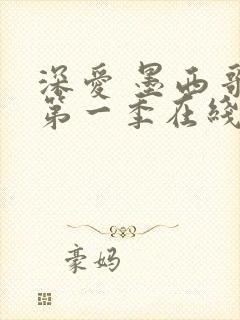 深爱 墨西哥
第一季在线
豪妈